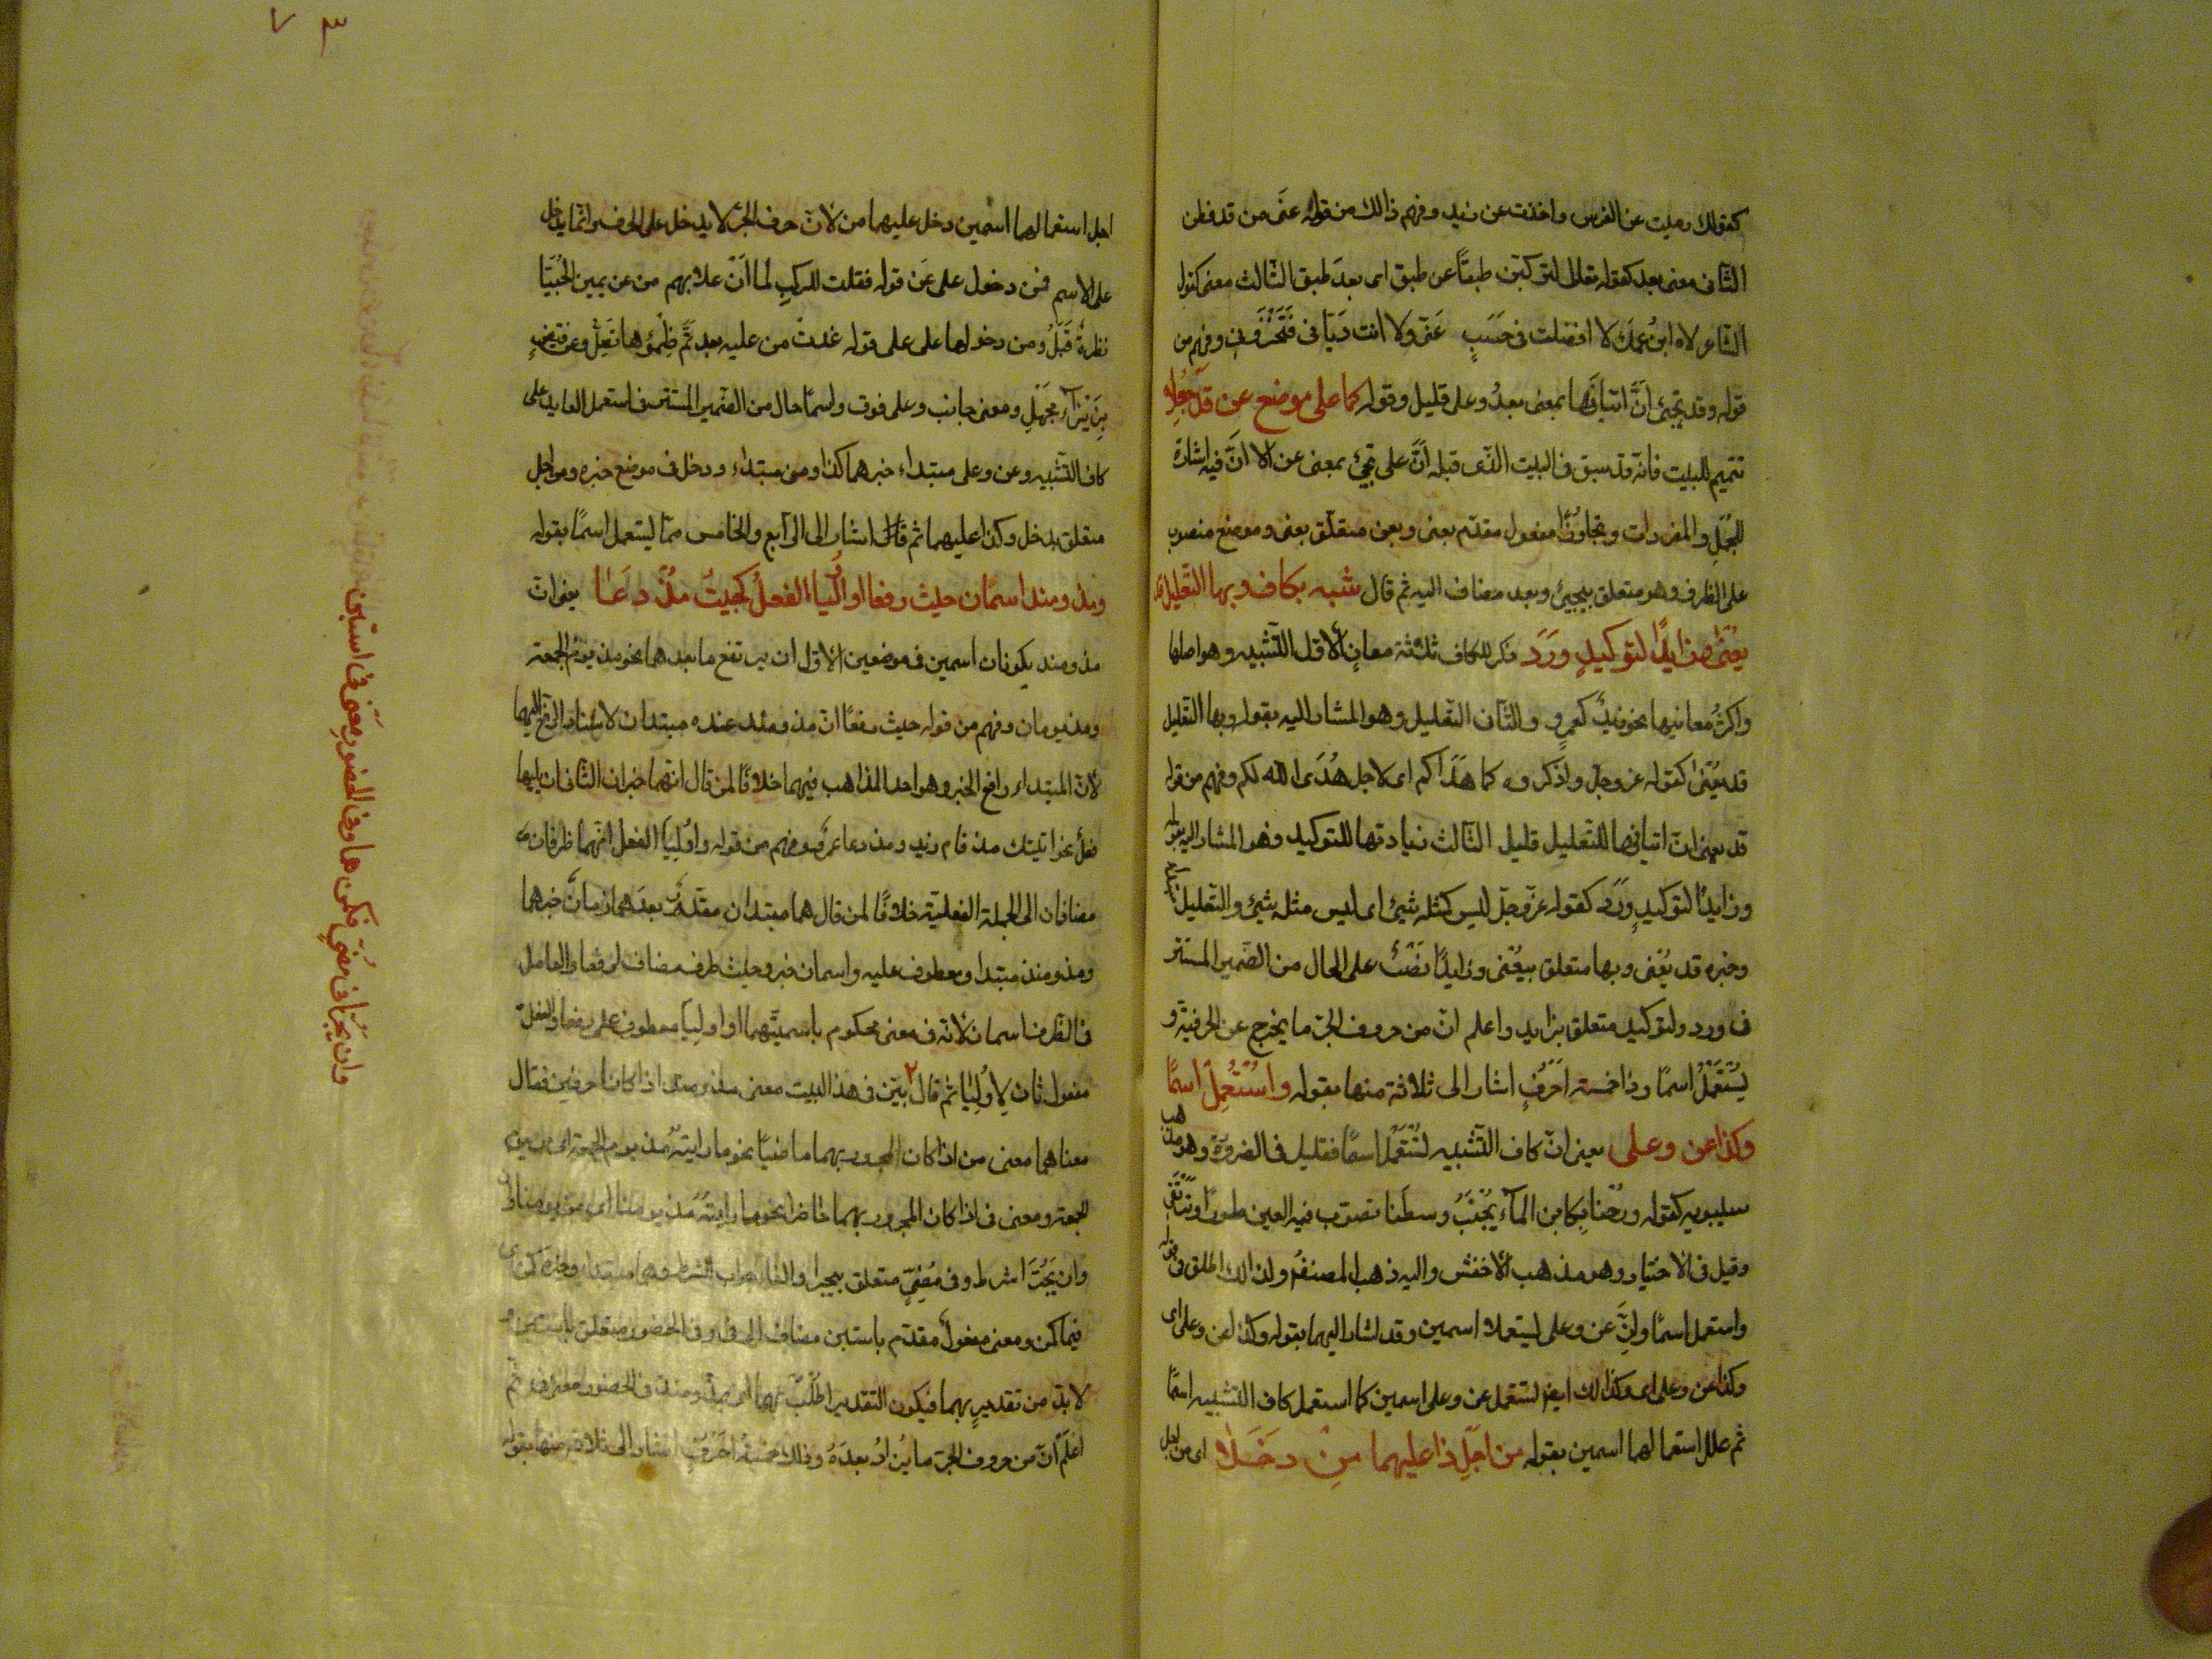 كقولك رميت عن القوس واخذت عن زيد وفهم ذالك من قوله عنى من قد فطن
الثانى معنى بعد كقوله تعالى لتركبن طبقًا عن طبق اى بعد طبق الثالث معنى كقول
الشاعر لاه ابن عمك لا افضلت فى حسب عنى ولا انت ديانى فتخزونى وفهم من
قوله وقد تجئ ان اتيانها بمعنى بعد وعلى قليل وقوله كما على موضع عن قد جعلا
تتميم للبيت فانه قد سبق فى البيت الذى قبله ان على تجئ بمعنى عن الا ان فيه اشارة
للجمل والمفردات وتجاوزًا مفعول مقدم بعنى وبعن متعلق بعنى وموضع منصوب
على الظرف وهو متعلق بيجئ وبعد مضاف اليه ثم قال شبه بكاف وبها التعليل قد
يعنى وزايدًا لتوكيد ورد ذكر للكاف ثلثة معان الاول التشبيه وهو اصلها
واكثر معانيها نحو زيد كعمرو والثانى التعليل وهو المشار اليه بقوله وبها التعليل
قد يعنى كقوله عز وجل واذكروه كما هداكم اى لاجل هدى الله لكم وفهم من قوله
قد يعنى ان اتيانها للتعليل قليل الثالث زيادتها للتوكيد وهو المشار اليه بقوله
وزايدًا لتوكيد ورد كقوله عز وجل ليس كمثله شيئ اى ليس مثله شيئ والتعليل مبتدا
وخبره قد يعنى وبها متعلق بيعنى وزايدًا نصب على الحال من الضمير المستتر
فى ورد ولتوكيد متعلق بزايد واعلم ان من حروف الجر ما يخرج عن الحرفية و
يستعمل اسمًا وذا خمسة احرف اشار الى ثلاثة منها بقوله واستعمل اسمًا
وكذا عن وعلى يعنى ان كاف التشبيه تستعمل اسمًا فقليل فى الضرورة وهو مذهب
سيبويه كقوله ورحنا بكابن المآء يجنب وسطنا تصوب فيه العين طورًا وترتقى
وقيل فى الاختيار وهو مذهب الاخفش واليه ذهب المصنف ولذالك اطلق فى قوله
واستعمل اسمًا وان عن وعلى استعملا اسمين وقد اشار اليهما بقوله وكذا عن وعلى اى
وكذا عن وعلى اى وكذالك ايضًا تستعمل عن وعلى اسمين كما استعمل كاف التشبيه اسمًا
ثم علل استعمالهما اسمين بقوله من اجل ذا عليهما من دخلا اى من اجل
اجل استعمالهما اسمين دخل عليهما من لان حرف الجر لا يدخل على الحرف وانما يدخل
على الاسم فمن دخول على عن قوله فقلت للركب لما ان علا بهم من عن يمين الحبيا
نظرة قبل ومن دخولها على على قوله غدت من عليه بعد تم ظمؤها تصل وعن قيض
بزيزآء مجهل ومعنى جانب وعلى فوق واسمًا حال من الضمير المستتر فى استعمل العايد على
كاف التشبيه وعن وعلى مبتداء خبرهما كذا ومن مبتداء ودخل فى موضع خبره ومن اجل
متعلق بدخل وكذا عليهما ثم قال اشار الى الرابع والخامس مما يستعمل اسمًا بقوله
ومذ ومنذ اسمان حيث رفعا او اوليا الفعل كجئت مذ دعا يعنى ان
مذ ومنذ يكونان اسمين فى موضعين الاول ان يرتفع ما بعدهما نحو مذ يوم الجمعة
ومذ يومان وفهم من قوله حيث رفعًا ان مذ ومنذ عنده مبتدان لاسناد الرفع اليهما
لان المبتداء رافع الخبر وهو احد المذاهب فيهما خلافًا لمن قال انهما خبران الثانى ان يليهما
فعل نحو اتيتك مذ قام زيد ومذ دعا عمرو وفهم من قوله او اوليا الفعل انهما ظرفان
مضافان الى الجملة الفعلية خلافًا لمن قال هما مبتدان مقدر بعدهما زمان خبرهما
ومذ ومنذ مبتدا ومعطوف عليه واسمان خبر وحيث ظرف مضاف لرفعا والعامل
فى الظرف اسمان لانه فى معنى محكوم باسميتهما او اوليا معطوف على رفعا والفعل
مفعول ثان لاوليا ثم قال بين فى هذا البيت معنى مذ ومنذ اذا كانا حرفين فقال
معناهما معنى من اذا كان المجرور بهما ماضيًا نحو ما رايته مذ يوم الجمعة اى من يوم
الجمعة ومعنى فى اذا كان المجرور بهما حاضرا نحو ما رايته مذ يومنا اى فى يومنا
وان يجرا شرط وفى مضى متعلق بيجرا والفاء جواب الشرط وهى مبتداء وخبره كمن
فيما كمن ومعنى مفعول مقدم باستبن مضاف الى فى وفى الحضور متعلق باستبن
لابد من تقدير بهما فيكون التقدير اطلب بهما اى بمذ ومنذ فى الحضور معنى فى ثم
اعلم ان من حروف الجر ما يزاد بعده وذلك خمسة احرف اشار الى ثلاثة منها بقوله
وان يجرا فى مضى فكمن هما وفى الحضور معنى فى استبن